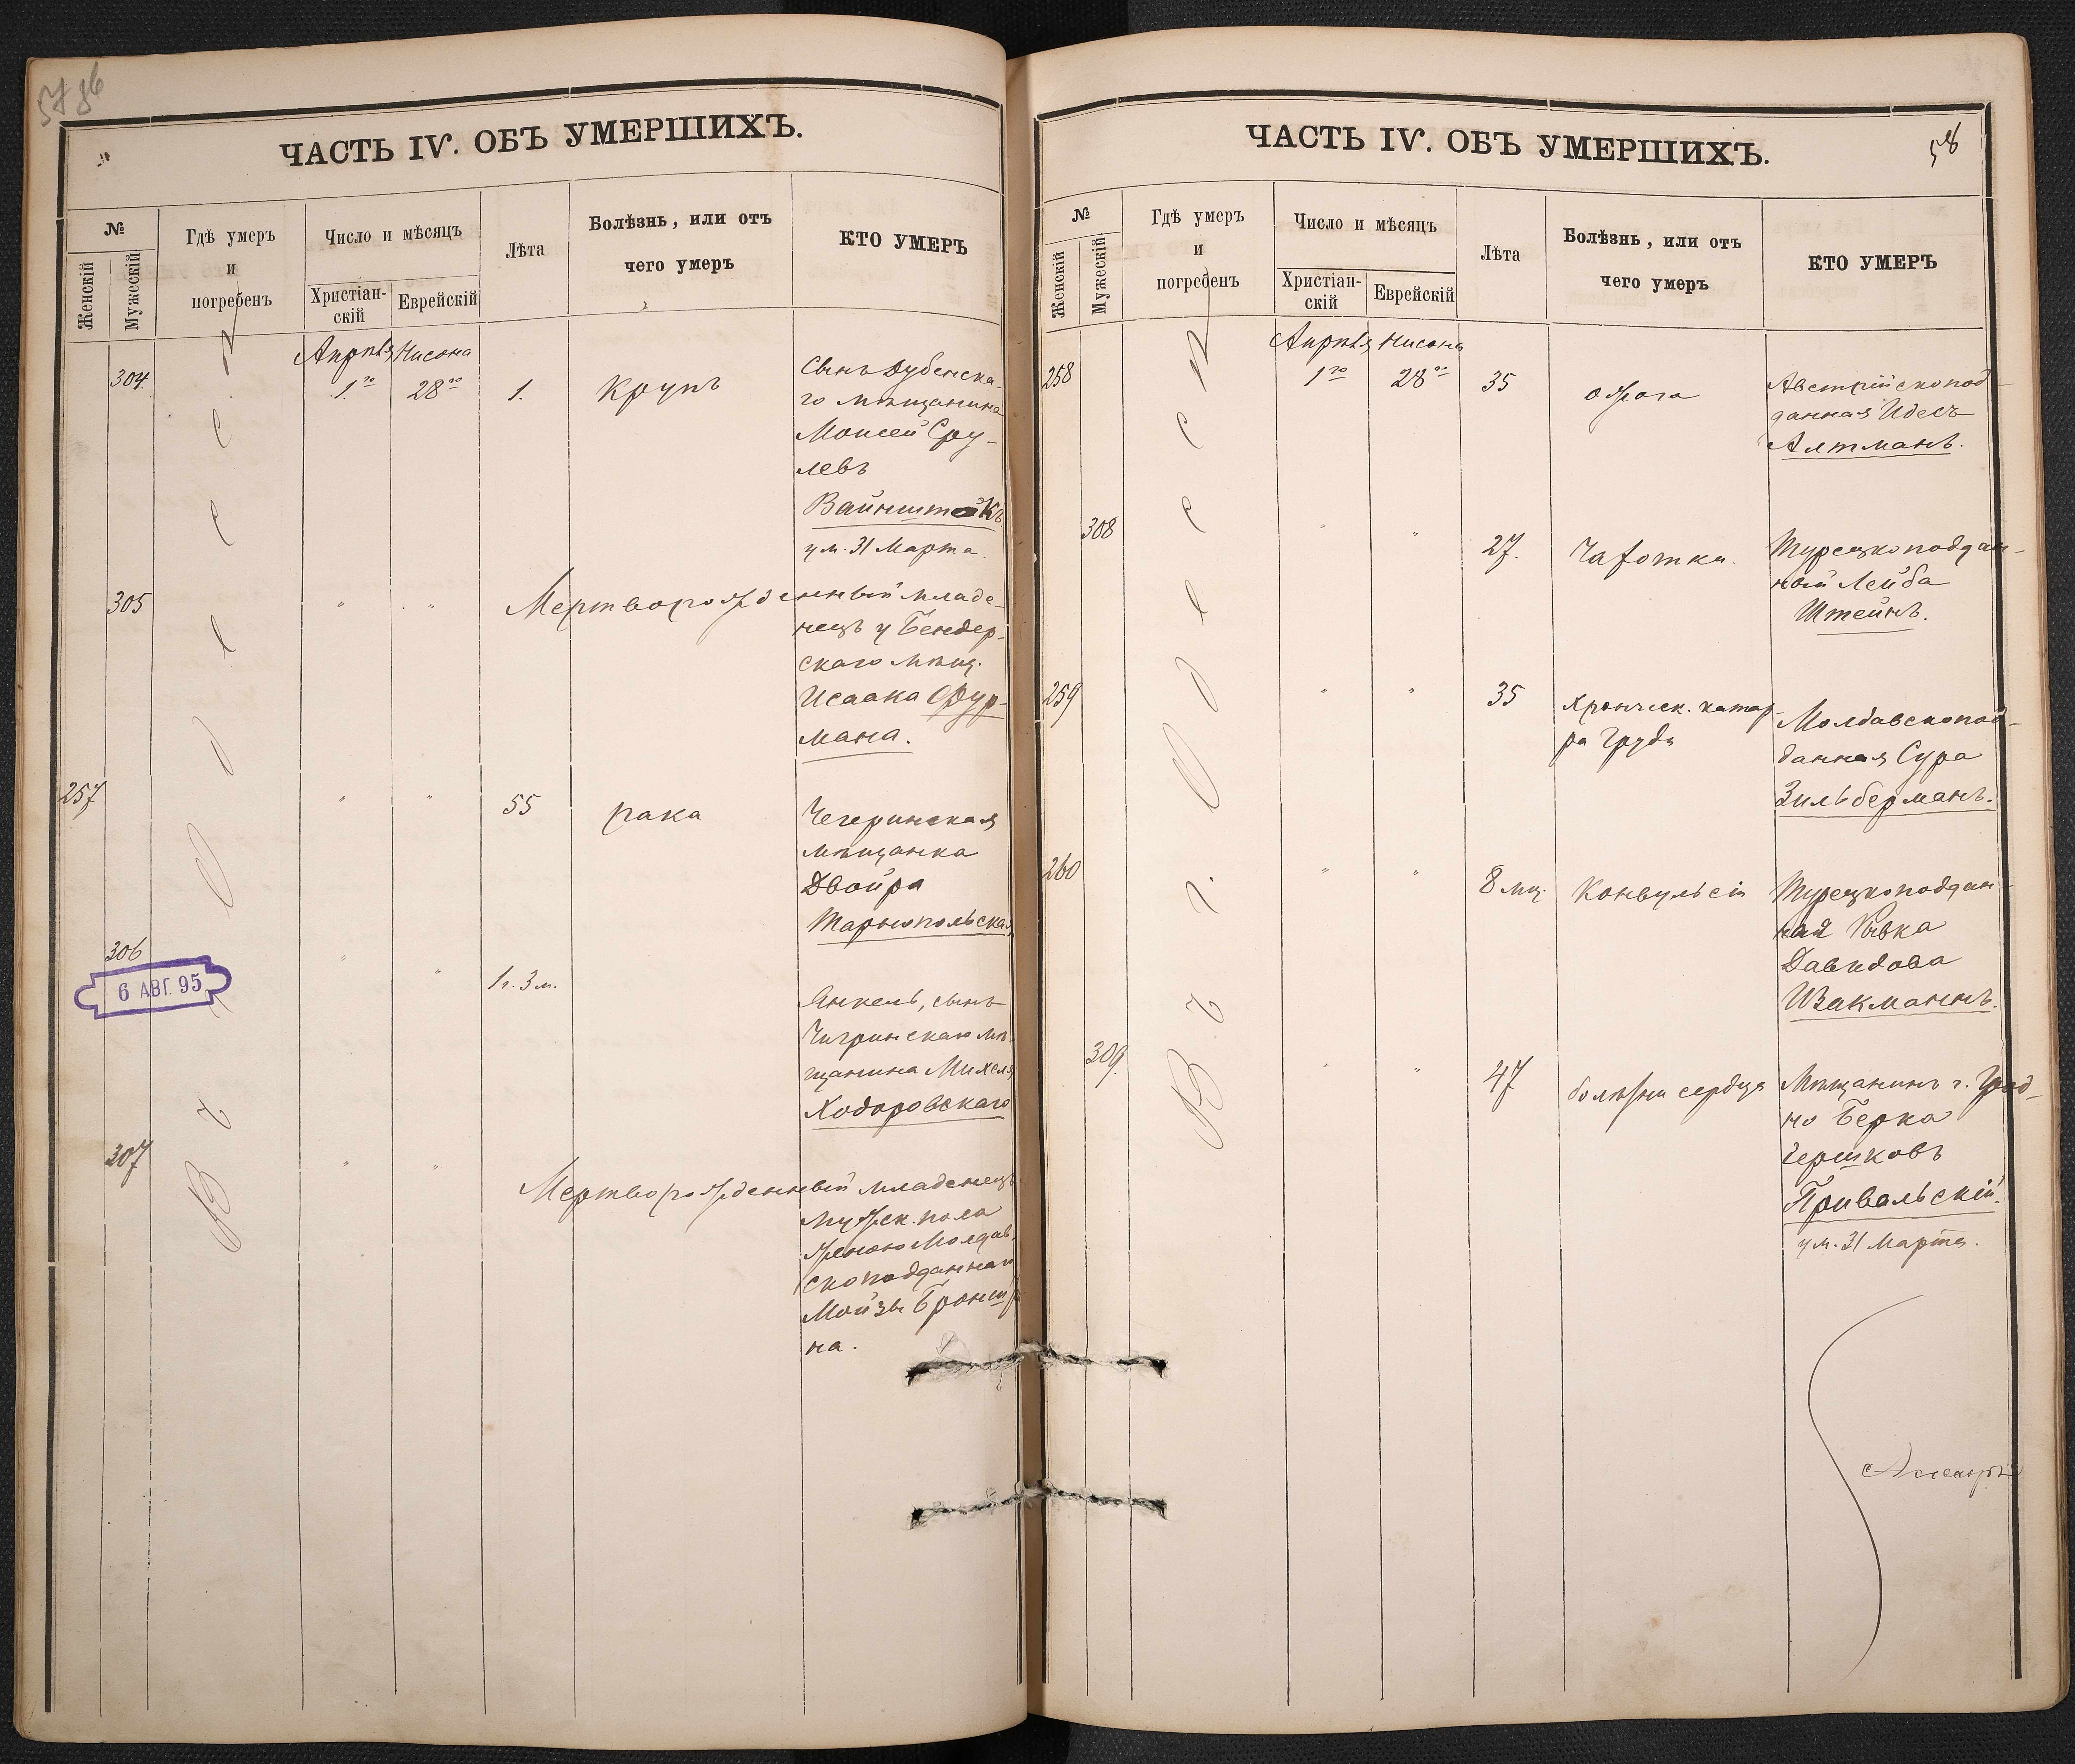 5786
ЧАСТЬ IV. ОБЪ УМЕРШИХЪ.
№
Женскій
Мужескій
Гдѣ умеръ
и
погребенъ
Число и мѣсяцъ
Христіан-
скій
Еврейскій
Лѣта
Болѣзнь, или отъ
чего умеръ
КТО УМЕРЪ
Въ Одессѣ
Апрѣля Нисона
304. 1го 28го 1. Крупъ
Сынъ Дубенска-
го мѣщанина
Моисей Сру-
левъ
Вайнштокъ
ум. 31 Марта.
305 " " Мертворожденный младе-
нецъ у Бендер-
скаго мѣщ.
Исаака Фур-
мана.
257 " " 55 рака
Чегеринская
мѣщанка
Двойра
Тарнопольская
306 " " 1 г. 3 м.
6 АВГ. 95
Янкель, сынъ
Чигринскаго мѣ-
щанина Михеля
Ходоровскаго
307 " " Мертворожденный младенецъ
мужск. пола
женою Молдав.
скоподданнаго
Мойзы Бронш
на.
ЧАСТЬ IV. ОБЪ УМЕРШИХЪ.
58
№
Женскій
Мужескій
Гдѣ умеръ
и
погребенъ
Число и мѣсяцъ
Христіан-
скій
Еврейскій
Лѣта
Болѣзнь, или отъ
чего умеръ
КТО УМЕРЪ
Въ г. Одессѣ
Апрѣля Нисона
258 1го 28го 35 ожога
Австрійскопод-
данная Идесъ
Алтманъ.
308 " " 27. Чахотки.
Турецкоподдан-
ный Лейба
Штейнъ.
259 " " 35 Хроническ. катар-
ра груди
Молдавскопод-
данная Сура
Зильберманъ.
260 " " 8 мц. Конвульсіи
Турецкоподдан-
ная Ривка
Давидова
Шзакманнъ.
309. " " 47 болѣзни сердца
Мѣщанинъ г. Грод-
но Берка
Гершковъ
Привальскій.
ум. 31 Марта.